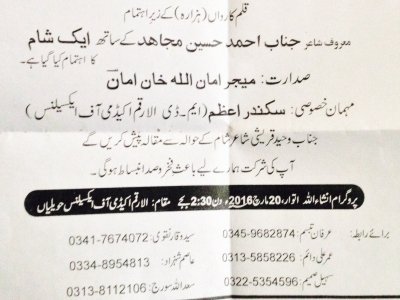 قلم کارواں (ہزارہ) کے زیر اہتمام
معروف شاعر جناب احمد حسین مجاهد کے ساتھ ایک شام
کا اہتمام کیا گیا ہے۔
صدارت: میجر امان الله خان امان
مہمان خصوصی: سکندر اعظم (ایم۔ڈی الارقم اکیڈمی آف ایکسیلنس)
جناب وحید قریشی شاعر شام کے حوالہ سے مقالہ پیش کریں گے
آپ کی شرکت ہمارے لیے باعث فخر و صد انبساط ہوگی۔
پروگرام انشاء اللہ اتوار، 20 مارچ 2016ء دن 2:30 بجے مقام: الارقم اکیڈمی آف ایکسیلنس حویلیاں
برائے رابطہ: عرفان تبسم 0345-9682874 سیدہ قار نقوی: 0341-7674072
عمر علی دائم: 0313-5858226 عاصم شہزاد: 0334-8954813
سہیل صمیم: 0322-5354596 سعد اللہ سورج: 0313-8112106